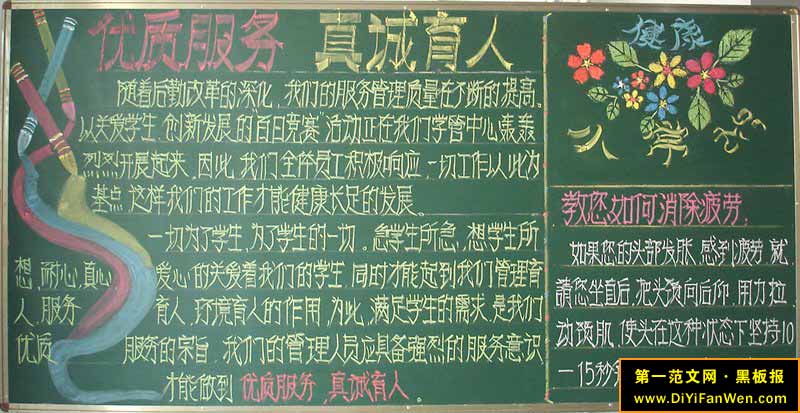 优质服务 真诚育人
随着后勤改革的深化，我们的服务管理质量在不断的提高。
以关爱学生，创新发展的"百日竞赛"活动正在我们学管中心轰轰
烈烈开展起来，因此，我们全体员工积极响应，一切工作以此为
基点，这样我们的工作才能健康长足的发展。
一切为了学生，为了学生的一切。急学生所急，想学生所
想，耐心，真心 爱心的关爱着我们的学生，同时才能起到我们管理育
人，服务 育人，环境育人的作用，为此，满足学生的需求，是我们
优质 服务的宗旨，我们的管理人员应具备强烈的服务意识，
才能做到 优质服务，真诚育人。
健康
教您如何消除疲劳：
如果您的头部发胀，感到疲劳，就
請您坐直后，把头颈向后仰，用力拉
动颈肌，使头在这种状态下坚持10
－15秒
第一范文网·黑板报
www.DiYiFanWen.com